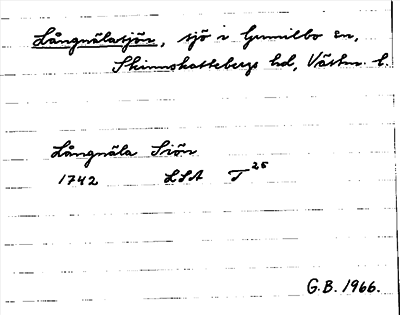 Långnälasjön, sjö i Gunnilbo sn,
Skinnskattebergs hd, Västm. l.
Långnäla Siön
1742 LSA T 26
G.B. 1966.